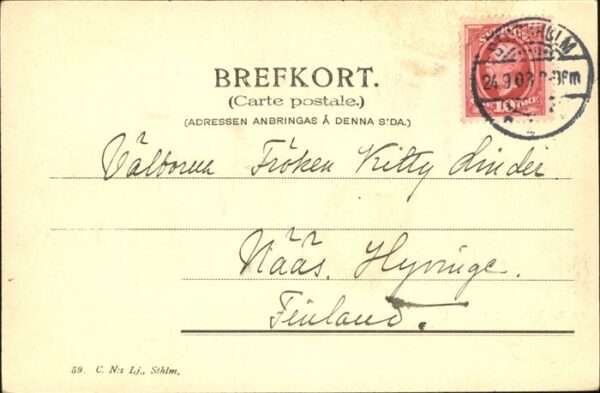 BREFKORT.
(Carte postale.)
(ADRESSEN ANBRINGAS Å DENNA S'DA.)
STOCKHOLM
Välborna Fröken Kitty Linder
Nääs. Hyvinge.
Finland.
59. C. N:s Lj., Sthlm.